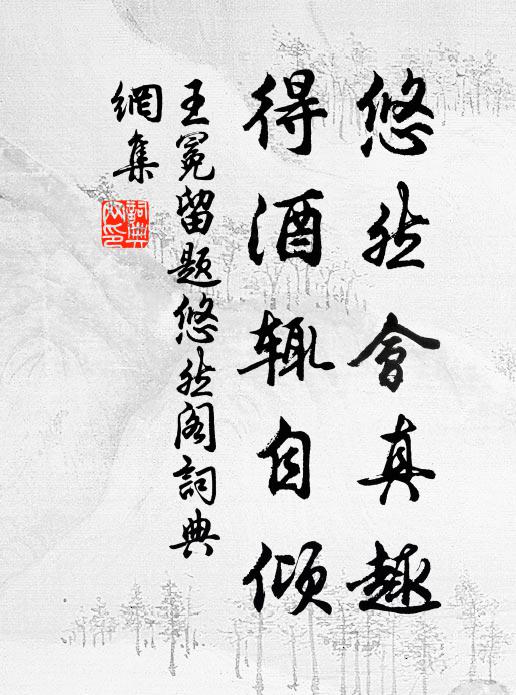 悠然會真趣
得酒辄自倾
王冕留題悠然阁詞典
網集
詞典網印